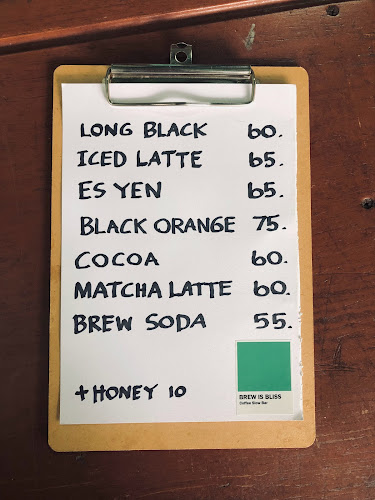 LONG BLACK 60.
ICED LATTE 65.
ES YEN 65.
BLACK ORANGE 75.
COCOA 60.
MATCHA LATTE 60.
BREW SODA 55.
+ HONEY 10
BREW IS BLISS
Coffee Slow Bar